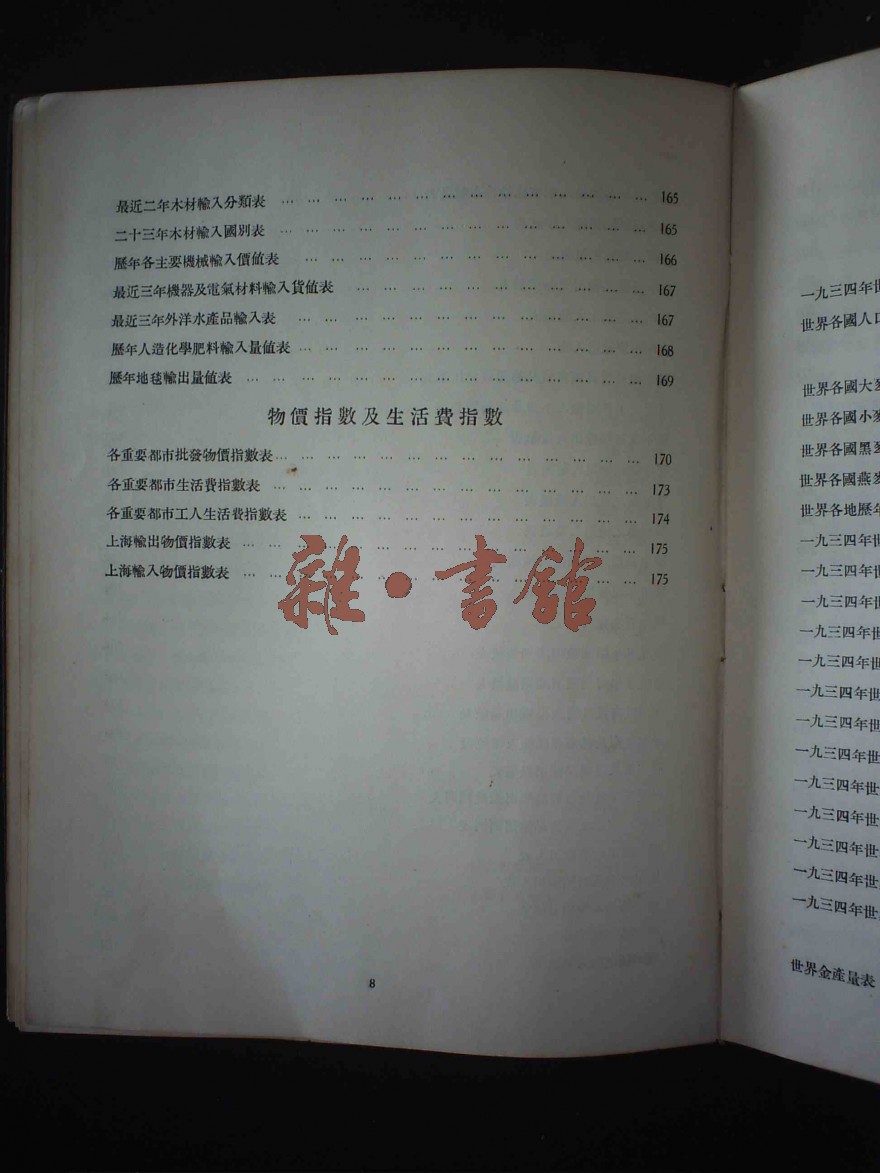 最近二年木材輸入分類表 … … … … … … … … … … … … … … 165
二十三年木材輸入國別表 … … … … … … … … … … … … … … 165
歷年各主要機械輸入價値表 … … … … … … … … … … … … … 166
最近三年機器及電氣材料輸入貨値表 … … … … … … … … … … … 167
最近三年外洋水產品輸入表 … … … … … … … … … … … … … … 167
歷年人造化學肥料輸入量値表 … … … … … … … … … … … … … 168
歷年地毯輸出量値表 … … … … … … … … … … … … … … … 169
物價指數及生活費指數
各重要都市批發物價指數表 … … … … … … … … … … … … … … 170
各重要都市生活費指數表 … … … … … … … … … … … … … … 173
各重要都市工人生活費指數表 … … … … … … … … … … … … … 174
上海輸出物價指數表 … … … … … … … … … … … … … … … 175
上海輸入物價指數表 … … … … … … … … … … … … … … … 175
雜·書館
8
一九三四年世
世界各國人口
世界各國大麥
世界各國小麥
世界各國黑麥
世界各國燕麥
世界各地歷年
一九三四年世
一九三四年世
一九三四年世
一九三四年世
一九三四年世
一九三四年世
一九三四年世
一九三四年世
一九三四年世
一九三四年世
一九三四年世
一九三四年世
一九三四年世
世界金產量表